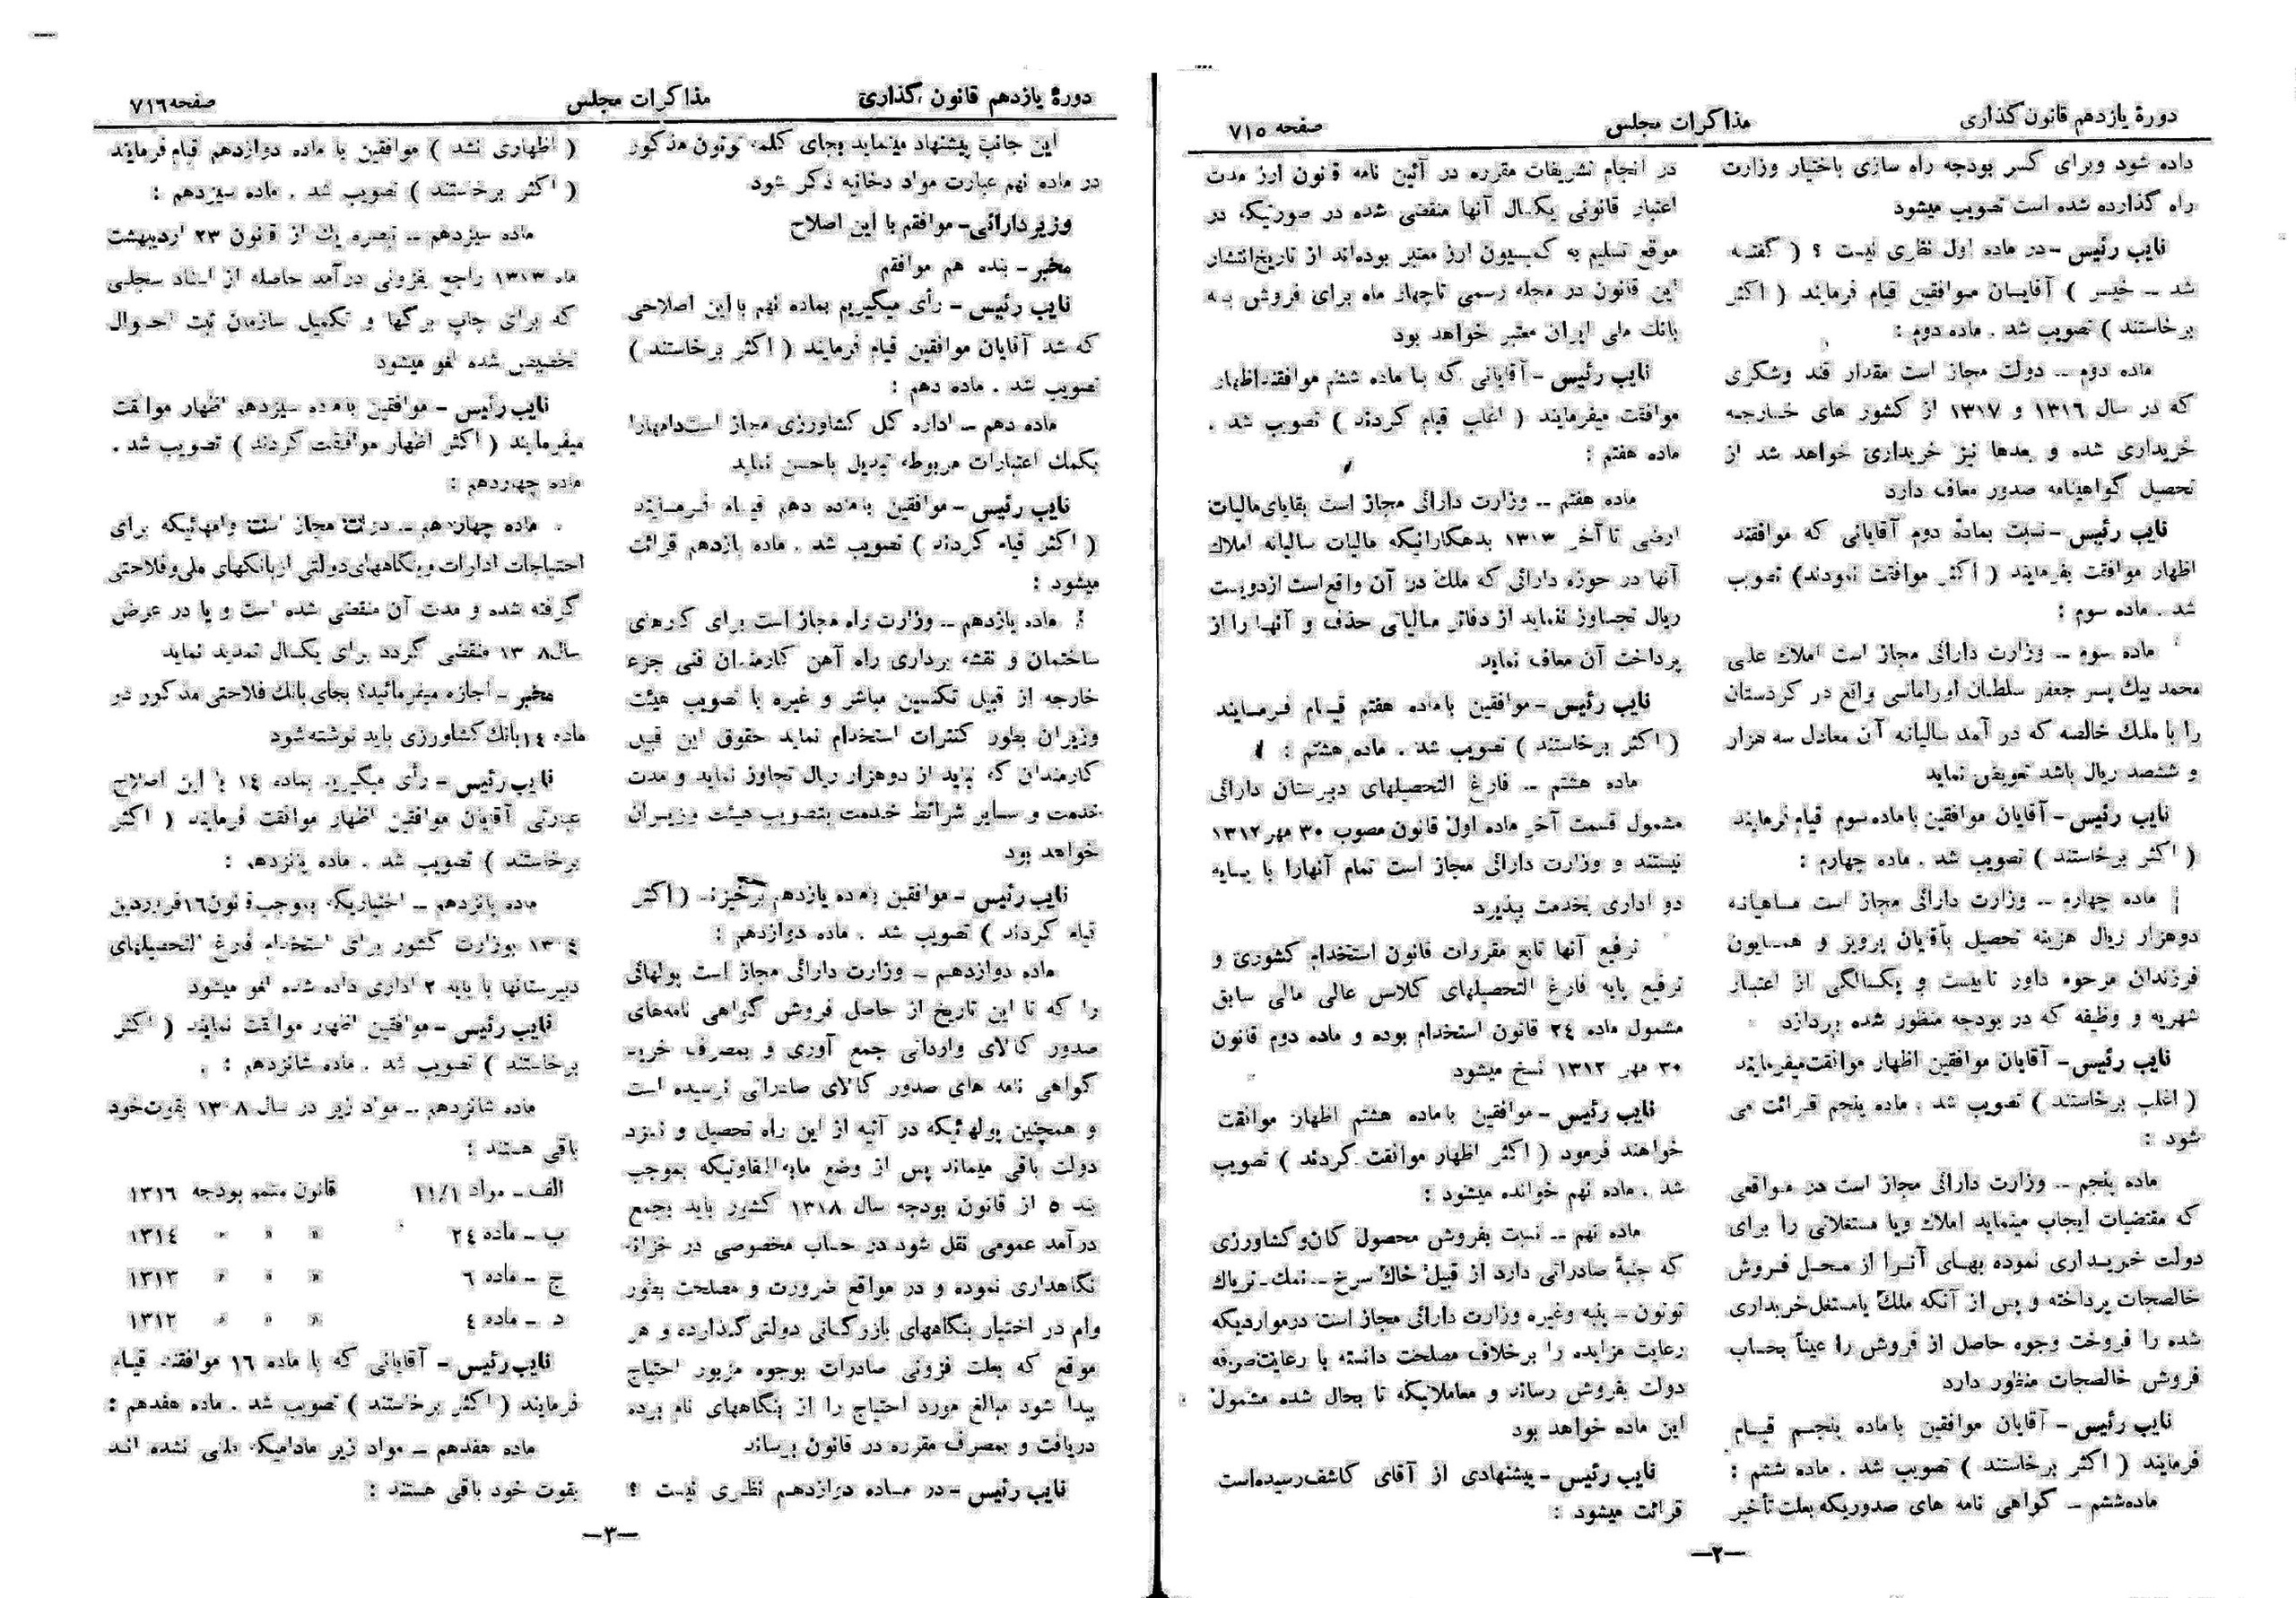 دورهٔ یازدهم قانون گذاری
مذاکرات مجلس
صفحه ۷۱۵
داده شود وبرای کسر بودجه راه سازی باختیار وزارت
راه گذارده شده است تصویب میشود
نایب رئیس - در ماده اول نظری نیست ؟ ( گفته
شد ــ خیر ) آقایان موافقین قیام فرمایند ( اکثر
برخاستند ) تصویب شد . ماده دوم :
ماده دوم ــ دولت مجاز است مقدار قند وشکری
که در سال ۱۳۱۶ و ۱۳۱۷ از کشور های خارجه
خریداری شده و بعدها نیز خریداری خواهد شد از
تحصیل گواهینامه صدور معاف دارد
نایب رئیس - نسبت بمادهٔ دوم آقایانی که موافقند
اظهار موافقت بفرمایند ( اکثر موافقت نمودند) تصویب
شد . ماده سوم :
ماده سوم ــ وزارت دارائی مجاز است املاک علی
محمد بیک پسر جعفر سلطان اورامانی واقع در کردستان
را با ملک خالصه که در آمد سالیانه آن معادل سه هزار
و ششصد ریال باشد تعویض نماید
نایب رئیس - آقایان موافقین با ماده سوم قیام فرمایند
( اکثر برخاستند ) تصویب شد . ماده چهارم :
ماده چهارم ــ وزارت دارائی مجاز است ماهیانه
دوهزار ریال هزینه تحصیل بآقایان پرویز و همایون
فرزندان مرحوم داور تا بیست و یکسالگی از اعتبار
شهریه و وظیفه که در بودجه منظور شده بپردازد
نایب رئیس - آقایان موافقین اظهار موافقت میفرمایند
( اغلب برخاستند ) تصویب شد . ماده پنجم قرائت می
شود :
ماده پنجم ــ وزارت دارائی مجاز است در مواقعی
که مقتضیات ایجاب مینماید املاک ویا مستغلاتی را برای
دولت خریداری نموده بهای آنرا از محل فروش
خالصجات پرداخته و پس از آنکه ملک یا مستغل خریداری
شده را فروخت وجوه حاصل از فروش را عیناً بحساب
فروش خالصجات منظور دارد
نایب رئیس - آقایان موافقین با ماده پنجم قیام
فرمایند ( اکثر برخاستند ) تصویب شد . ماده ششم :
ماده ششم ــ گواهی نامه های صدوریکه بعلت تأخیر
در انجام تشریفات مقرره در آئین نامه قانون ارز مدت
اعتبار قانونی یکسال آنها منقضی شده در صورتیکه در
موقع تسلیم به کمیسیون ارز معتبر بوده‌اند از تاریخ انتشار
این قانون در مجله رسمی تا چهار ماه برای فروش به
بانک ملی ایران معتبر خواهد بود
نایب رئیس - آقایانی که با ماده ششم موافقند اظهار
موافقت میفرمایند ( اغلب قیام کردند ) تصویب شد .
ماده هفتم :
ماده هفتم ــ وزارت دارائی مجاز است بقایای مالیات
ارضی تا آخر ۱۳۱۳ بدهکارانیکه مالیات سالیانه املاک
آنها در حوزه دارائی که ملک در آن واقع است ازدویست
ریال تجاوز ننماید از دفاتر مالیاتی حذف و آنها را از
پرداخت آن معاف نماید
نایب رئیس - موافقین با ماده هفتم قیام فرمایند
( اکثر برخاستند ) تصویب شد . ماده هشتم :
ماده هشتم ــ فارغ التحصیلهای دبیرستان دارائی
مشمول قسمت آخر ماده اول قانون مصوب ۳۰ مهر ۱۳۱۲
نیستند و وزارت دارائی مجاز است تمام آنهارا با پایه
دو اداری بخدمت بپذیرد
ترفیع آنها تابع مقررات قانون استخدام کشوری و
ترفیع پایه فارغ التحصیلهای کلاس عالی مالی سابق
مشمول ماده ۲٤ قانون استخدام بوده و ماده دوم قانون
۳۰ مهر ۱۳۱۲ نسخ میشود
نایب رئیس - موافقین با ماده هشتم اظهار موافقت
خواهند فرمود ( اکثر اظهار موافقت کردند ) تصویب
شد . ماده نهم خوانده میشود :
ماده نهم ــ نسبت بفروش محصول کان و کشاورزی
که جنبهٔ صادراتی دارد از قبیل خاک سرخ ــ نمک ــ تریاک
توتون ــ پنبه وغیره وزارت دارائی مجاز است در مواردیکه
رعایت مزایده را برخلاف مصلحت دانسته با رعایت صرفه
دولت بفروش رساند و معاملاتیکه تا بحال شده مشمول
این ماده خواهد بود
نایب رئیس - پیشنهادی از آقای کاشف رسیده است
قرائت میشود :
—۲—
دورهٔ یازدهم قانون گذاری
مذاکرات مجلس
صفحه ۷۱۶
این جانب پیشنهاد مینماید بجای کلمه توتون مذکور
در ماده نهم عبارت مواد دخانیه ذکر شود
وزیر دارائی - موافقم با این اصلاح
مخبر - بنده هم موافقم
نایب رئیس - رأی میگیریم بماده نهم با این اصلاحی
که شد آقایان موافقین قیام فرمایند ( اکثر برخاستند )
تصویب شد . ماده دهم :
ماده دهم ــ اداره کل کشاورزی مجاز است دامها را
بکمک اعتبارات مربوطه تبدیل باحسن نماید
نایب رئیس - موافقین با ماده دهم قیام فرمایند
( اکثر قیام کردند ) تصویب شد . ماده یازدهم قرائت
میشود :
ماده یازدهم ــ وزارت راه مجاز است برای کارهای
ساختمان و نقشه برداری راه آهن کارمندان فنی جزء
خارجه از قبیل تکنسین مباشر و غیره با تصویب هیئت
وزیران بطور کنترات استخدام نماید حقوق این قبیل
کارمندان که نباید از دوهزار ریال تجاوز نماید و مدت
خدمت و سایر شرائط خدمت بتصویب هیئت وزیران
خواهد بود
نایب رئیس - موافقین بماده یازدهم برخیزند ( اکثر
قیام کردند ) تصویب شد . ماده دوازدهم :
ماده دوازدهم ــ وزارت دارائی مجاز است پولهائی
را که تا این تاریخ از حاصل فروش گواهی نامه‌های
صدور کالای وارداتی جمع آوری و بمصرف خرید
گواهی نامه های صدور کالای صادراتی نرسیده است
و همچنین پولهائیکه در آتیه از این راه تحصیل و نزد
دولت باقی میماند پس از وضع مابه‌التفاوتیکه بموجب
بند ۵ از قانون بودجه سال ۱۳۱۸ کشور باید بجمع
درآمد عمومی نقل شود در حساب مخصوصی در خزانه
نگاهداری نموده و در مواقع ضرورت و مصلحت بطور
وام در اختیار بنگاههای بازرگانی دولتی گذارده و هر
موقع که بعلت فزونی صادرات بوجوه مزبور احتیاج
پیدا شود مبالغ مورد احتیاج را از بنگاههای نام برده
دریافت و بمصرف مقرره در قانون برساند
نایب رئیس - در ماده دوازدهم نظری نیست ؟
( اظهاری نشد ) موافقین با ماده دوازدهم قیام فرمایند
( اکثر برخاستند ) تصویب شد . ماده سیزدهم :
ماده سیزدهم ــ تبصره یک از قانون ۲۳ اردیبهشت
ماه ۱۳۱۳ راجع بفزونی درآمد حاصله از اسناد سجلی
که برای چاپ برگها و تکمیل سازمان ثبت احوال
تخصیص شده لغو میشود
نایب رئیس - موافقین با ماده سیزدهم اظهار موافقت
میفرمایند ( اکثر اظهار موافقت کردند ) تصویب شد .
ماده چهاردهم :
ماده چهاردهم ــ دولت مجاز است وامهائیکه برای
احتیاجات ادارات و بنگاههای دولتی از بانکهای ملی و فلاحتی
گرفته شده و مدت آن منقضی شده است و یا در عرض
سال ۱۳۱۸ منقضی گردد برای یکسال تمدید نماید
مخبر - اجازه میفرمائید؟ بجای بانک فلاحتی مذکور در
ماده ۱٤ بانک کشاورزی باید نوشته شود
نایب رئیس - رأی میگیریم بماده ۱٤ با این اصلاح
عبارتی آقایان موافقین اظهار موافقت فرمایند ( اکثر
برخاستند ) تصویب شد . ماده پانزدهم :
ماده پانزدهم ــ اختیاریکه بموجب قانون ۱۶ فروردین
۱۳۰٤ بوزارت کشور برای استخدام فارغ التحصیلهای
دبیرستانها با پایه ۲ اداری داده شده لغو میشود
نایب رئیس - موافقین اظهار موافقت نمایند ( اکثر
برخاستند ) تصویب شد . ماده شانزدهم :
ماده شانزدهم ــ مواد زیر در سال ۱۳۱۸ بقوت خود
باقی هستند :
الف ــ مواد ۱۱/۱ قانون متمم بودجه ۱۳۱۶
ب ــ ماده ۲٤ » » » ۱۳۱٤
ج ــ ماده ۶ » » » ۱۳۱۳
د ــ ماده ٤ » » » ۱۳۱۲
نایب رئیس - آقایانی که با ماده ۱۶ موافقند قیام
فرمایند ( اکثر برخاستند ) تصویب شد . ماده هفدهم :
ماده هفدهم ــ مواد زیر مادامیکه ملغی نشده اند
بقوت خود باقی هستند :
—۳—